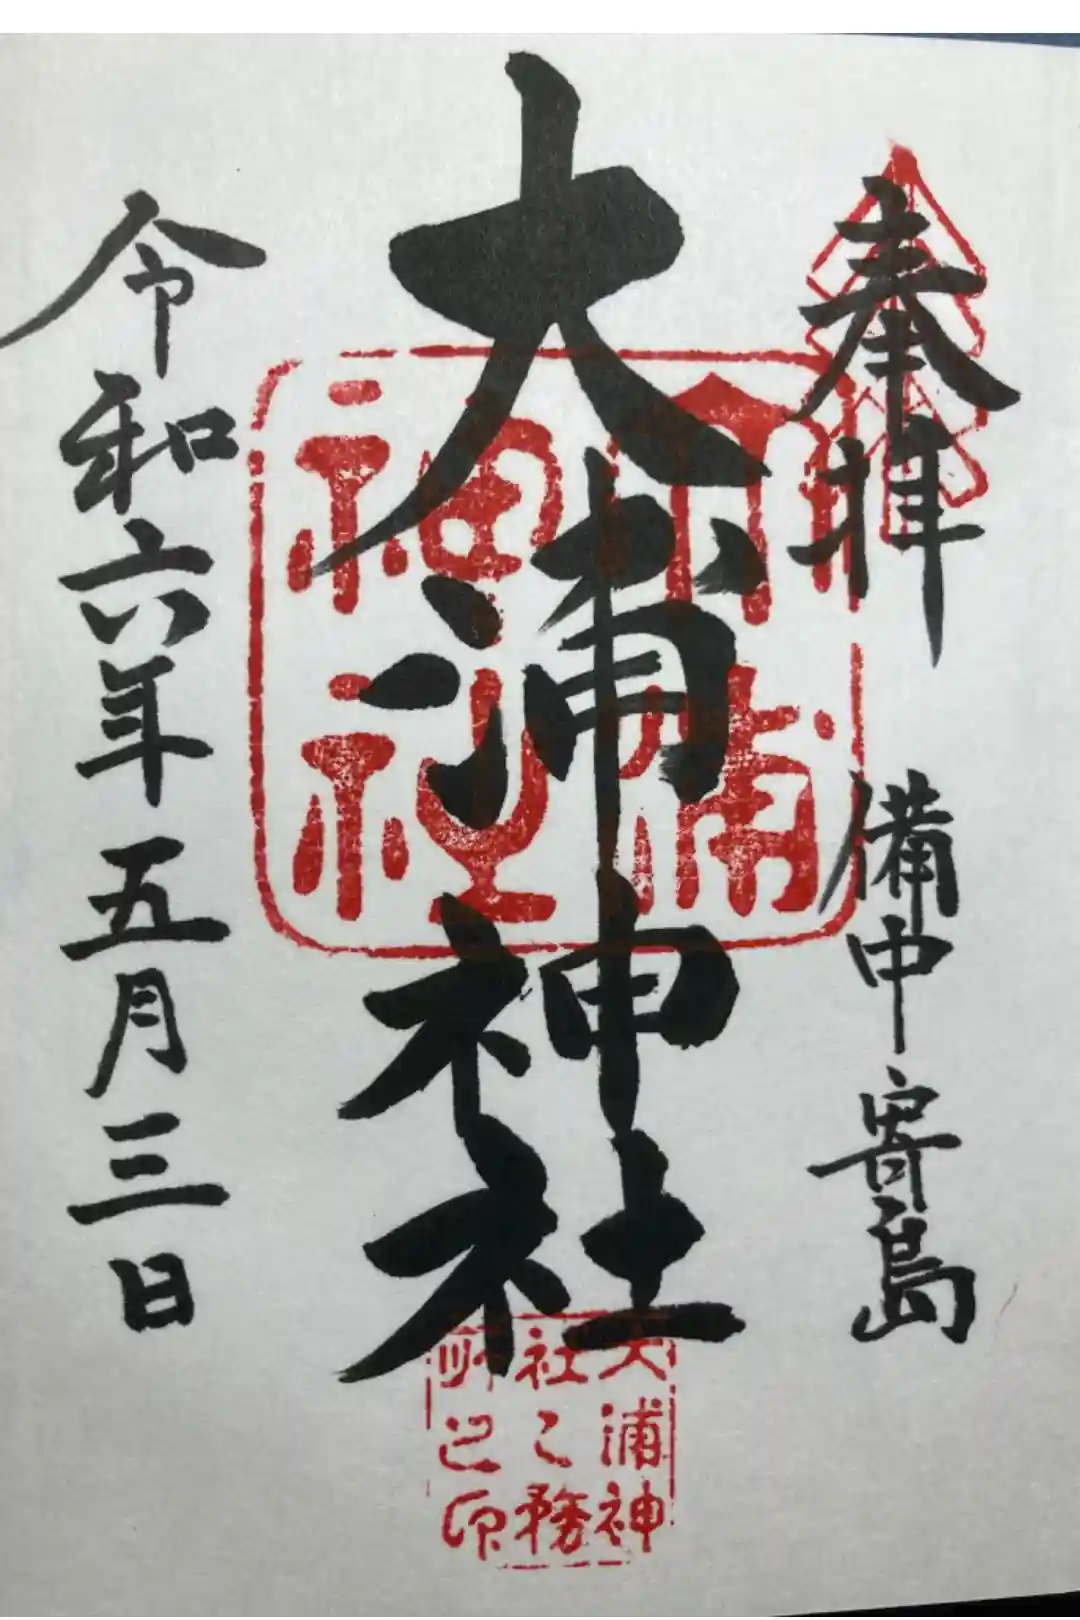 奉拝
備中寄島
大浦神社
令和六年五月三日
大浦神社
大浦神
社之務
所之印